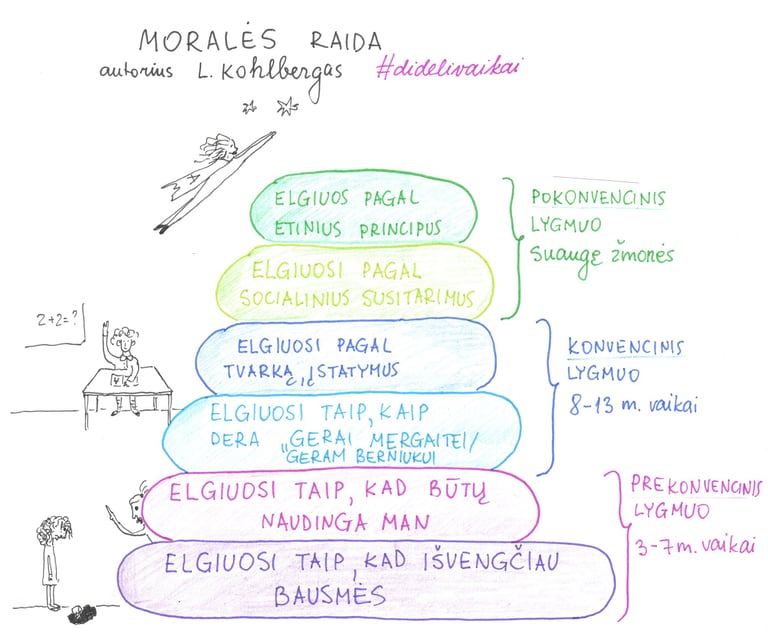 MORALĖS RAIDA
autorius L. Kohlbergas #didelivaikai
ELGIUOS PAGAL
ETINIUS PRINCIPUS
POKONVENCINIS
LYGMUO
Suaugę žmonės
ELGIUOSI PAGAL
SOCIALINIUS SUSITARIMUS
2+2=?
ELGIUOSI PAGAL
TVARKĄ, ĮSTATYMUS
KONVENCINIS
LYGMUO
8-13 m. vaikai
ELGIUOSI TAIP, KAIP
DERA „GERAI MERGAITEI/
GERAM BERNIUKUI
ELGIUOSI TAIP, KAD BŪTŲ
NAUDINGA MAN
PREKONVENCINIS
LYGMUO
3-7 m. vaikai
ELGIUOSI TAIP, KAD IŠVENGČIAU
BAUSMĖS